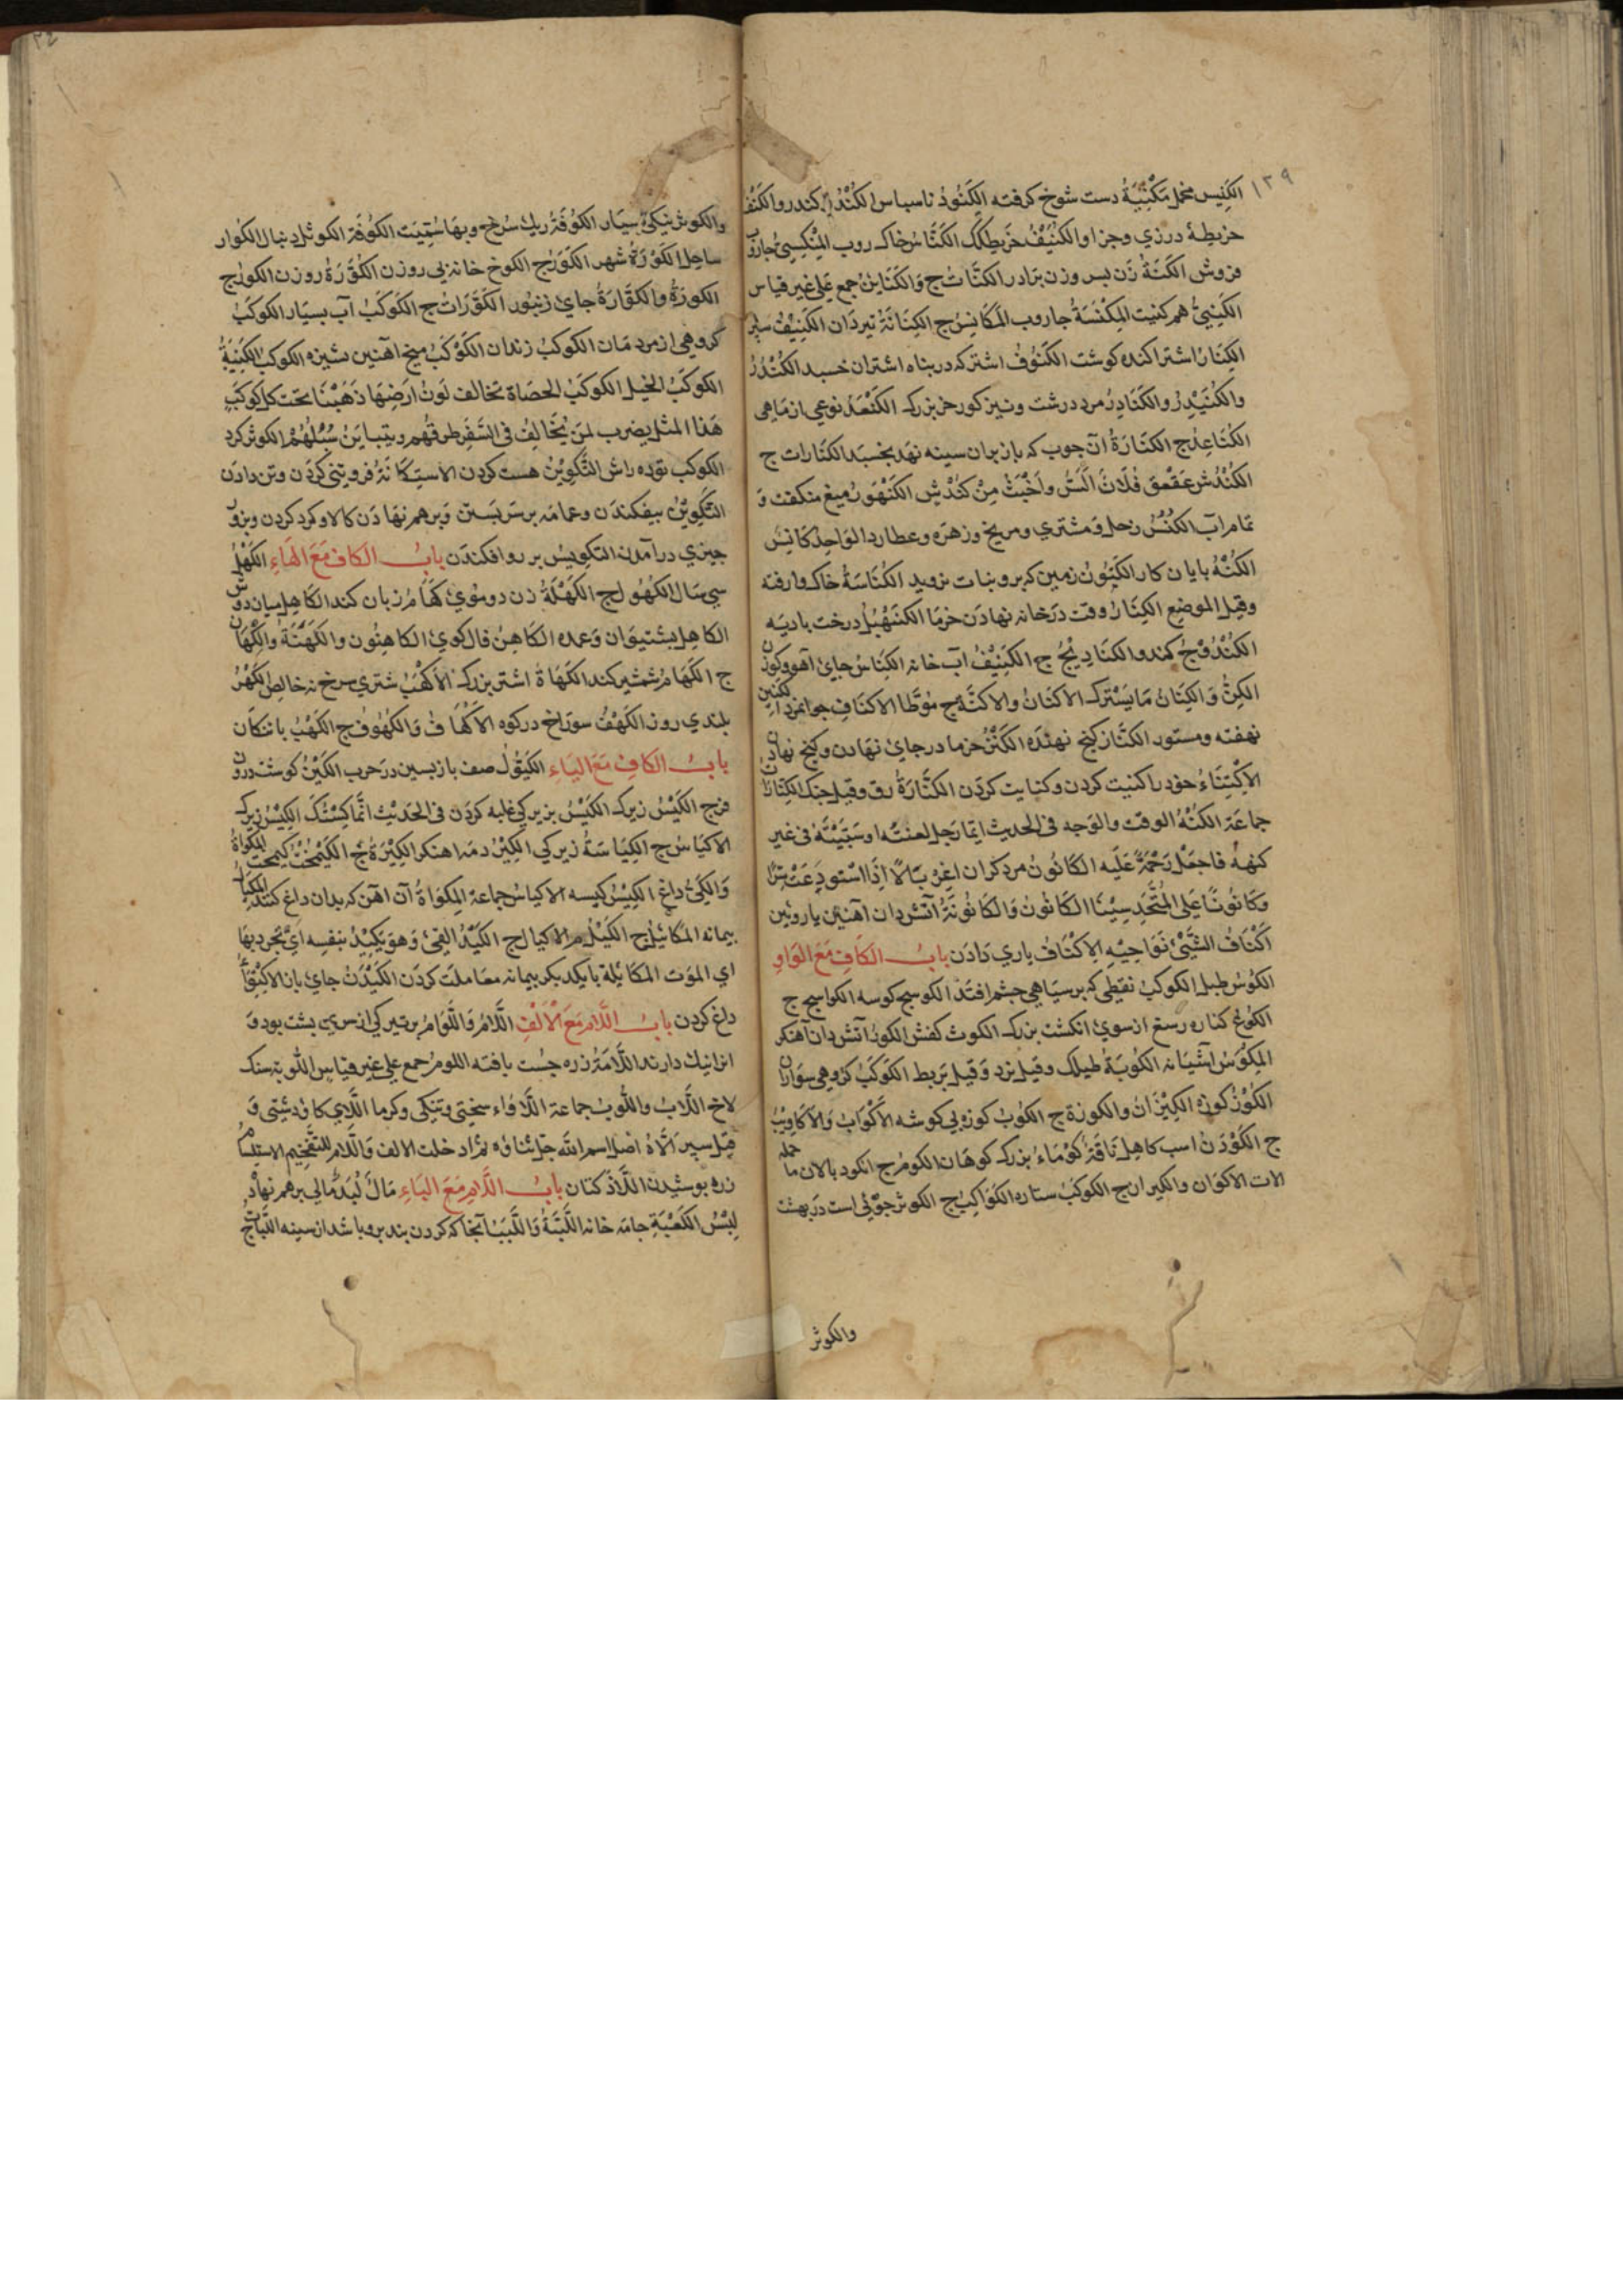 ١٣٩
الكَنِيس نخل مُكْنِبَةُ دست شوخ كرفته الكَنُودُ ناسباس الكُنْدُر كندر والكَنْفُ
خريطهٔ درزي وجزاو الكُنَيْفُ خريطكك الكَنَّاسُ خاك روب المِكْنَسِيُّ جاروب
فروش الكَنَّةُ زن بسر وزن برادر الكَنَّاتُ ج وَالكَنَاينُ جمع عَلى غير قياس
الكَنِيُّ هم كنيت المِكْنَسَةُ جاروب المَكَانِسُ ج الكِنَانَةُ تيردَان الكَنِيْفُ سبر
الكِنَازُ اشتر اكنده كوشت الكَنُوفُ اشتر كه دربناه اشتران خسبد الكُنْدُرُ
والكُنَيْدِرُ والكُنَادِرُ مرد درشت ونيز كورخر بزرك الكَنْعَدُ نوعي از ماهي
الكَنَاعِدُ ج الكَنَارَةُ آن جوب كه باز بران سينه نهد بخسبد الكنارات ج
الكُنْدُش عَقْعَق فُلَانٌ اَلَصُّ واَخْبَثُ مِنْ كُنْدُشٍ الكَنَهْوَرُ ميغ
تمام آب الكُنَّسُ زحل ومشتري ومريخ وزهره وعطارد الوَاحِدُ كَانِسٌ
الكُنْهُ بايان كار زمين كه برو نبات نرويد الكُنَاسَةُ خاك وارفته
وقيل الموضع الكِنَازُ وقت درخانه نهادن خرما الكَنَهْبُلُ درخت باديه
الكُنْدُوجُ كندو الكَنَادِيْجُ ج الكَنِيْفُ آب خانه الكِنَاسُ جاى آهو وكوزن
الكِنُّ وَالكِنَانُ مَا يَسْتُرك الاكنَانُ والاكنَّةُ ج مُوَطَّا الاكنَافِ جوانمرد
نهفته ومستور الكنْز كنج نهنده الكَنْزُ خرما درجاى نهادن وكنج نهادن
الاِكْتِنَاءُ خود را كنيت كردن وكنايت كردن الكَنَّارَةُ دف وقيل جنك الكنارات
جماعَة الكُنْهُ الوقت والوَجه فى الحديث ايما رَجل لعنتُه او سَبَبْتُه فى غير
كنهه فاجعَلْ رَحْمَةً عَلَيه الكَانُونُ مرد كران اغِرْبَالًا اِذَا اسْتودِعْتِ سِرًّا
وكَانُونًا عَلى المُتَحَدِّثِيْنَا الكَانُونُ وَالكَانُونَةُ آتش دان آهنين يا روئين
اَكْنَافُ الشَّيْئ نَوَاحِيْهِ الاِكْنَافُ ياري دَادَن بابُ الكَافِ مَعَ الوَاوِ
الكُوْسُ طبل الكَوكبُ نقطي كه بر سياهي جشم افتد الكوسج كوسه الكواسج ج
الكُوعُ كناره رسغ از سوى انكشت بزرك الكوث كفش الكورُ آتش دان آهنكر
المِكْوَسُ آشيَانه الكُوبَةُ طبلك وقيل نرد وَقيل بَربط الكَوكَبُ كروهي سواران
الكُوْزُ كوزه الكِيْزَانُ والكوزة ج الكوبُ كوزه بي كوشه الاَكْوَابُ وَالاَكَاوِيْبُ
ج الكَوْدَنُ اسب كاهل نَاقَةٌ كَوْمَاءُ بزرك كوهَان الكومُ ج الكور بالان با جمله
الات الاكوَان والكيران ج الكوكبُ ستاره الكَوَاكِبُ ج الكوثر جوئي است در بهشت
والكوثر
والكوثر نيكئ بسيَار الكُوْفَةُ ريك سُرخ وبهَا سُمِّيَت الكُوْفَة الكوثل دنبال الكَوار
ساحل الكُوْرَةُ شهر الكُوَرُ ج الكوخ خانه بي روزن الكُوَّةُ روزن الكوى ج
الكورَةُ والكُوَّارَةُ جاى زنبور الكُوَّرَاتُ ج الكَوكَبُ آب بسيار الكوكبُ
كروهي از مردمَان الكوكبُ زندان الكَوْكَبُ ميخ آهنين نيزه الكوكب الكَتِيْبَةُ
الكوكَبُ الخيل الكوكَبُ الحصَاة تخالف لَونُ ارَضِهَا ذَهَبْنَا تحت كل كوكَبٍ
هَذا المثل يضرب لمَنْ يُخَالِفُ فى السَّفَر طرقُهم وتتباينُ سُبُلُهُمْ الكوثر كرد
الكوكب توده راش التَّكوِيْنُ هست كردن الاستِكَانَةُ فروتنى كردن وتن دادن
التَّكْوِيْرُ بيفكندن وعمامه بر سر بستن وبرهم نهادَن كالا وكرد كردن وبزور
جيزي درآمدن التكويس بر رو افكندن بابُ الكاف مَعَ الهَاءِ الكَهْلُ
سي سال الكُهُولُ ج الكَهْلَةُ زن دو موى كَهَامُ زبان كند الكَاهِل ميان دوش
الكاهل بشتيوان وَعمده الكاهنُ فال كوى الكاهِنُون والكَهَنَةُ والكُهَّانُ
ج الكَهَامُ شمشير كند الكَهَاةُ اشتر بزرك الاَكْهَبُ شتري سرخ نه خالص الكَهْرُ
بلندي روز الكَهْفُ سوراخ دركوه الاَكْهَافُ وَالكُهُوفُ ج الكَهْبُ
بابُ الكافِ مَعَ اليَاءِ الكَيُّوْلُ صف بازبسين درحرب الكَيْنُ كوشت درون
فرج الكَيْسُ زيرك الكَيْسُ بزيركي غلبه كردن فى الحديث انَّمَا كِسْتُكَ الكَيْسُ زيرك
الاكيَاسُ ج الكِيَاسَةُ زيركي الكِيْرُ دمَه اهنكر الكِيْرَةُ ج الكَيْمُخْتُ كيمخت المِكْوَاةُ
وَالكَيُّ داغ الكِيْسُ كيسه الاكياسُ جماعة المِكوَاةُ آن آهن كه بدان داغ كنند المِكْيَالُ
بيمانه المكائيل ج الكَيْلُ م الاكيال ج الكَيْدُ القئ وَهوَ يَكِيْدُ بنفسِه ايْ يَجُودُ بهَا
اي الموَت المكَايَلَة بايكديكر بيمانه معَاملت كردن الكَيْدَنُ
داغ كردن بابُ اللَّام مَعَ الاَلْفِ اللَّامُ وَاللُّوَامُ بر تير كي از سوى بشت بود وَ
ازانيك دارند اللَّأمَةُ زره جُست بافته اللوم جمع على غير قياس اللوبة سنك
لاخ اللَّابُ واللُّوبُ جماعة اللَّاوَاء سختي وتنكى وكرما اللَّاى كاو دشتى وَ
قيل سبر اَللَّاهُ اصل اسم الله جل ثناؤه ثم اُدخلت الالف وَاللام للتفخيم الاستلام
زره بوشيدن اللَّاذ كتان بابُ اللَّامِ مَعَ البَاءِ مَالٌ لُبَدٌ مالي برهم نهاده
لِبْسُ الكَعْبَةِ جامَه خانه اللَّبَّةُ وَاللَّبَبُ آنجا كه كردن بند برو باشد از سينه اللَّبَّاتُ ج